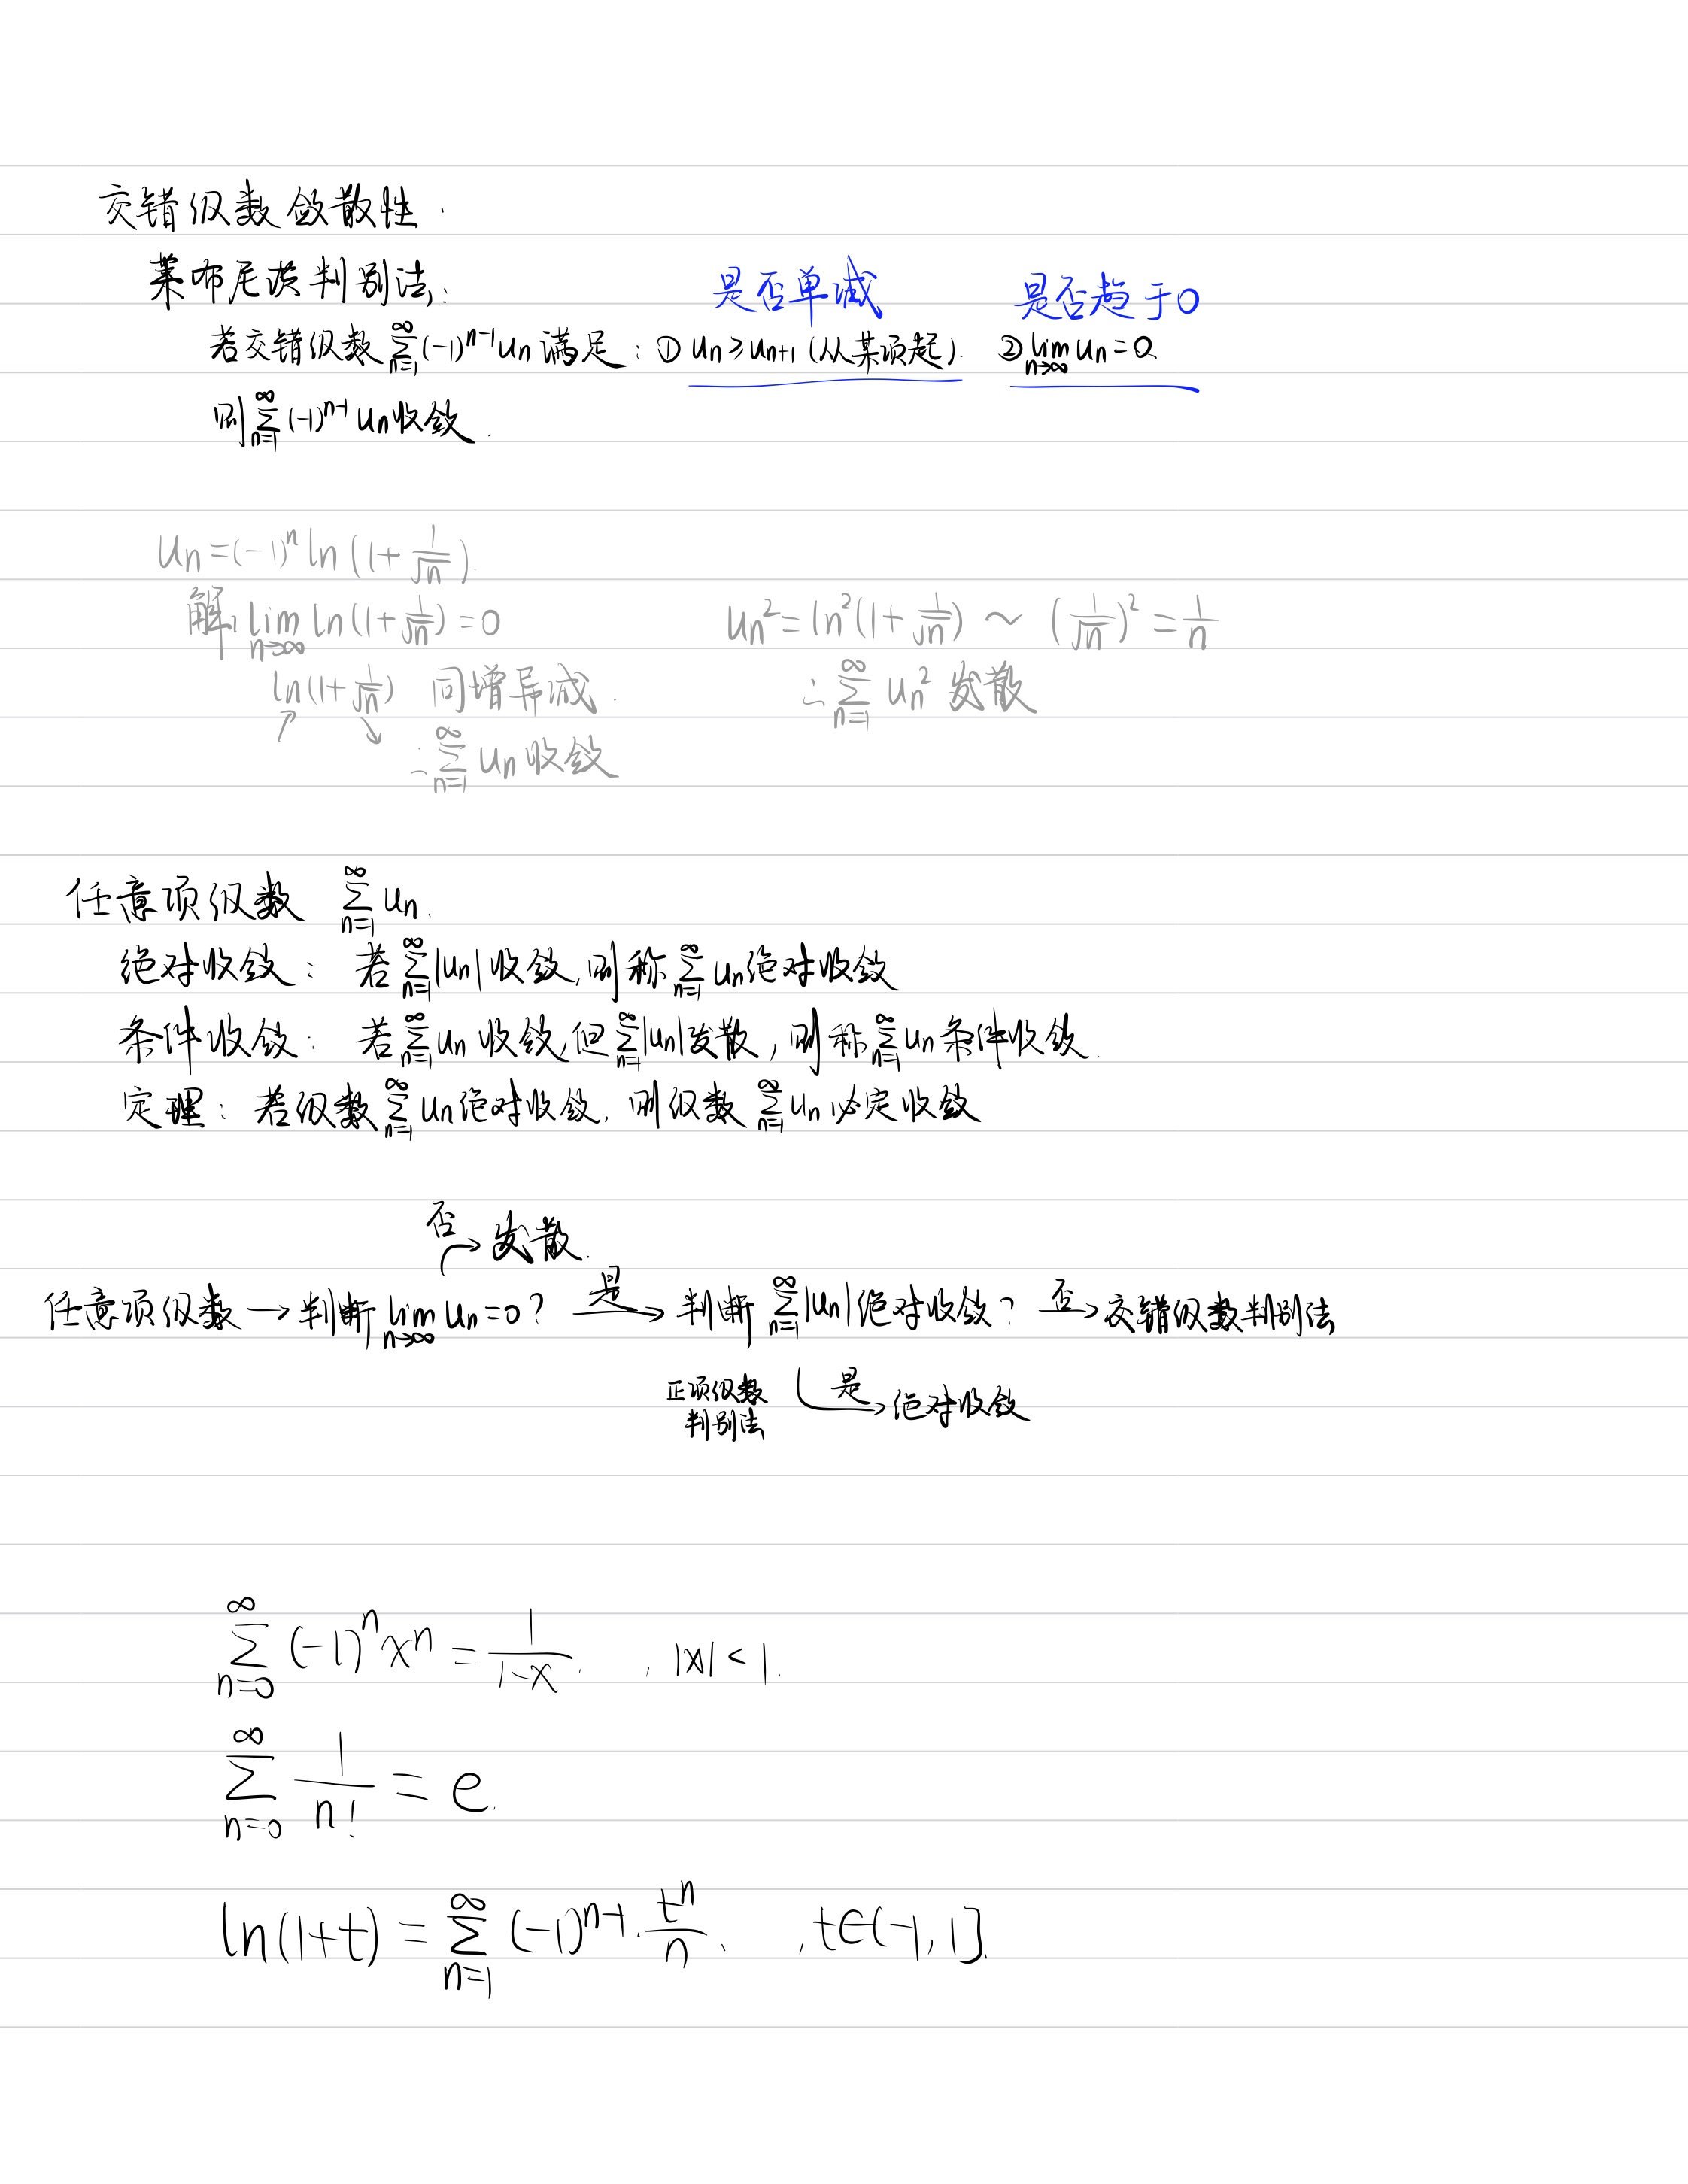 交错级数敛散性.
莱布尼茨判别法:
是否单减 是否趋于0
若交错级数 ∑_{n=1}^{∞} (-1)^{n-1} u_n 满足: ① u_n ≥ u_{n+1} (从某项起). ② lim_{n→∞} u_n = 0.
则 ∑_{n=1}^{∞} (-1)^{n-1} u_n 收敛.
u_n = (-1)^n ln(1+1/√n).
解: lim_{n→∞} ln(1+1/√n) = 0
u_n² = ln²(1+1/√n) ~ (1/√n)² = 1/n
ln(1+1/√n) 同增异减.
↗ ↘
∴ ∑_{n=1}^{∞} u_n² 发散
∴ ∑_{n=1}^{∞} u_n 收敛
任意项级数 ∑_{n=1}^{∞} u_n.
绝对收敛: 若 ∑_{n=1}^{∞} |u_n| 收敛, 则称 ∑_{n=1}^{∞} u_n 绝对收敛
条件收敛: 若 ∑_{n=1}^{∞} u_n 收敛, 但 ∑_{n=1}^{∞} |u_n| 发散, 则称 ∑_{n=1}^{∞} u_n 条件收敛.
定理: 若级数 ∑_{n=1}^{∞} u_n 绝对收敛, 则级数 ∑_{n=1}^{∞} u_n 必定收敛
否 → 发散.
任意项级数 → 判断 lim_{n→∞} u_n = 0? 是 → 判断 ∑_{n=1}^{∞} |u_n| 绝对收敛? 否 → 交错级数判别法
正项级数
判别法
是 → 绝对收敛
∑_{n=0}^{∞} (-1)^n x^n = 1/(1-x). , |x| < 1.
∑_{n=0}^{∞} 1/n! = e.
ln(1+t) = ∑_{n=1}^{∞} (-1)^{n-1} · t^n/n. , t∈(-1, 1].